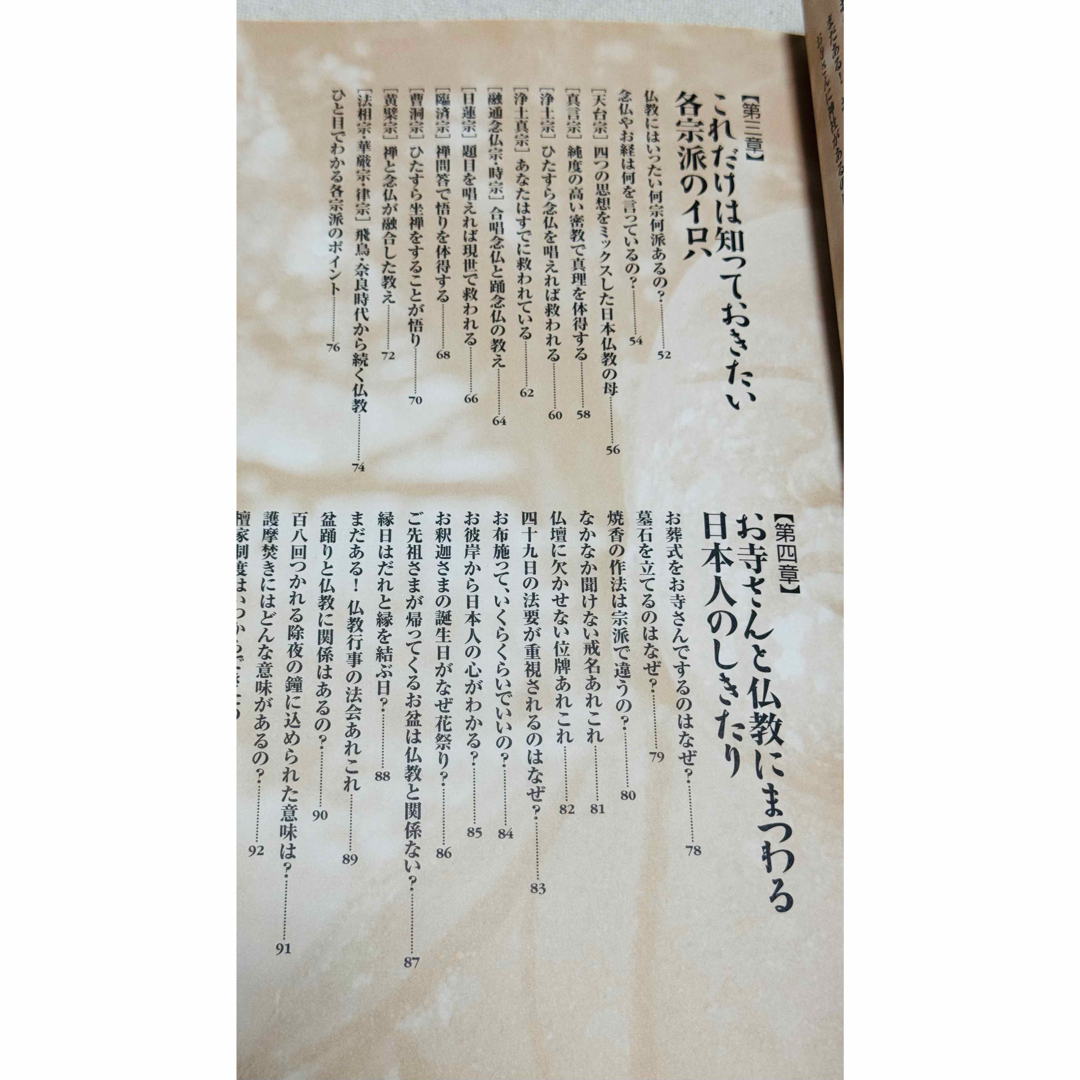 【第三章】
これだけは知っておきたい
各宗派のイロハ
仏教にはいったい何宗何派あるの？…………52
念仏やお経は何を言っているの？…………54
［天台宗］四つの思想をミックスした日本仏教の母…………56
［真言宗］純度の高い密教で真理を体得する…………58
［浄土宗］ひたすら念仏を唱えれば救われる…………60
［浄土真宗］あなたはすでに救われている…………62
［融通念仏宗・時宗］合唱念仏と踊念仏の教え…………64
［日蓮宗］題目を唱えれば現世で救われる…………66
［臨済宗］禅問答で悟りを体得する…………68
［曹洞宗］ひたすら坐禅をすることが悟り…………70
［黄檗宗］禅と念仏が融合した教え…………72
［法相宗・華厳宗・律宗］飛鳥・奈良時代から続く仏教…………74
ひと目でわかる各宗派のポイント…………76
【第四章】
お寺さんと仏教にまつわる
日本人のしきたり
お葬式をお寺さんでするのはなぜ？…………78
墓石を立てるのはなぜ？…………79
焼香の作法は宗派で違うの？…………80
なかなか聞けない戒名あれこれ…………81
仏壇に欠かせない位牌あれこれ…………82
四十九日の法要が重視されるのはなぜ？…………83
お布施って、いくらくらいでいいの？…………84
お彼岸から日本人の心がわかる？…………85
お釈迦さまの誕生日がなぜ花祭り？…………86
ご先祖さまが帰ってくるお盆は仏教と関係ない？…………87
縁日はだれと縁を結ぶ日？…………88
まだある！仏教行事の法会あれこれ…………89
盆踊りと仏教に関係はあるの？…………90
百八回つかれる除夜の鐘に込められた意味は？…………91
護摩焚きにはどんな意味があるの？…………92
檀家制度はいつから